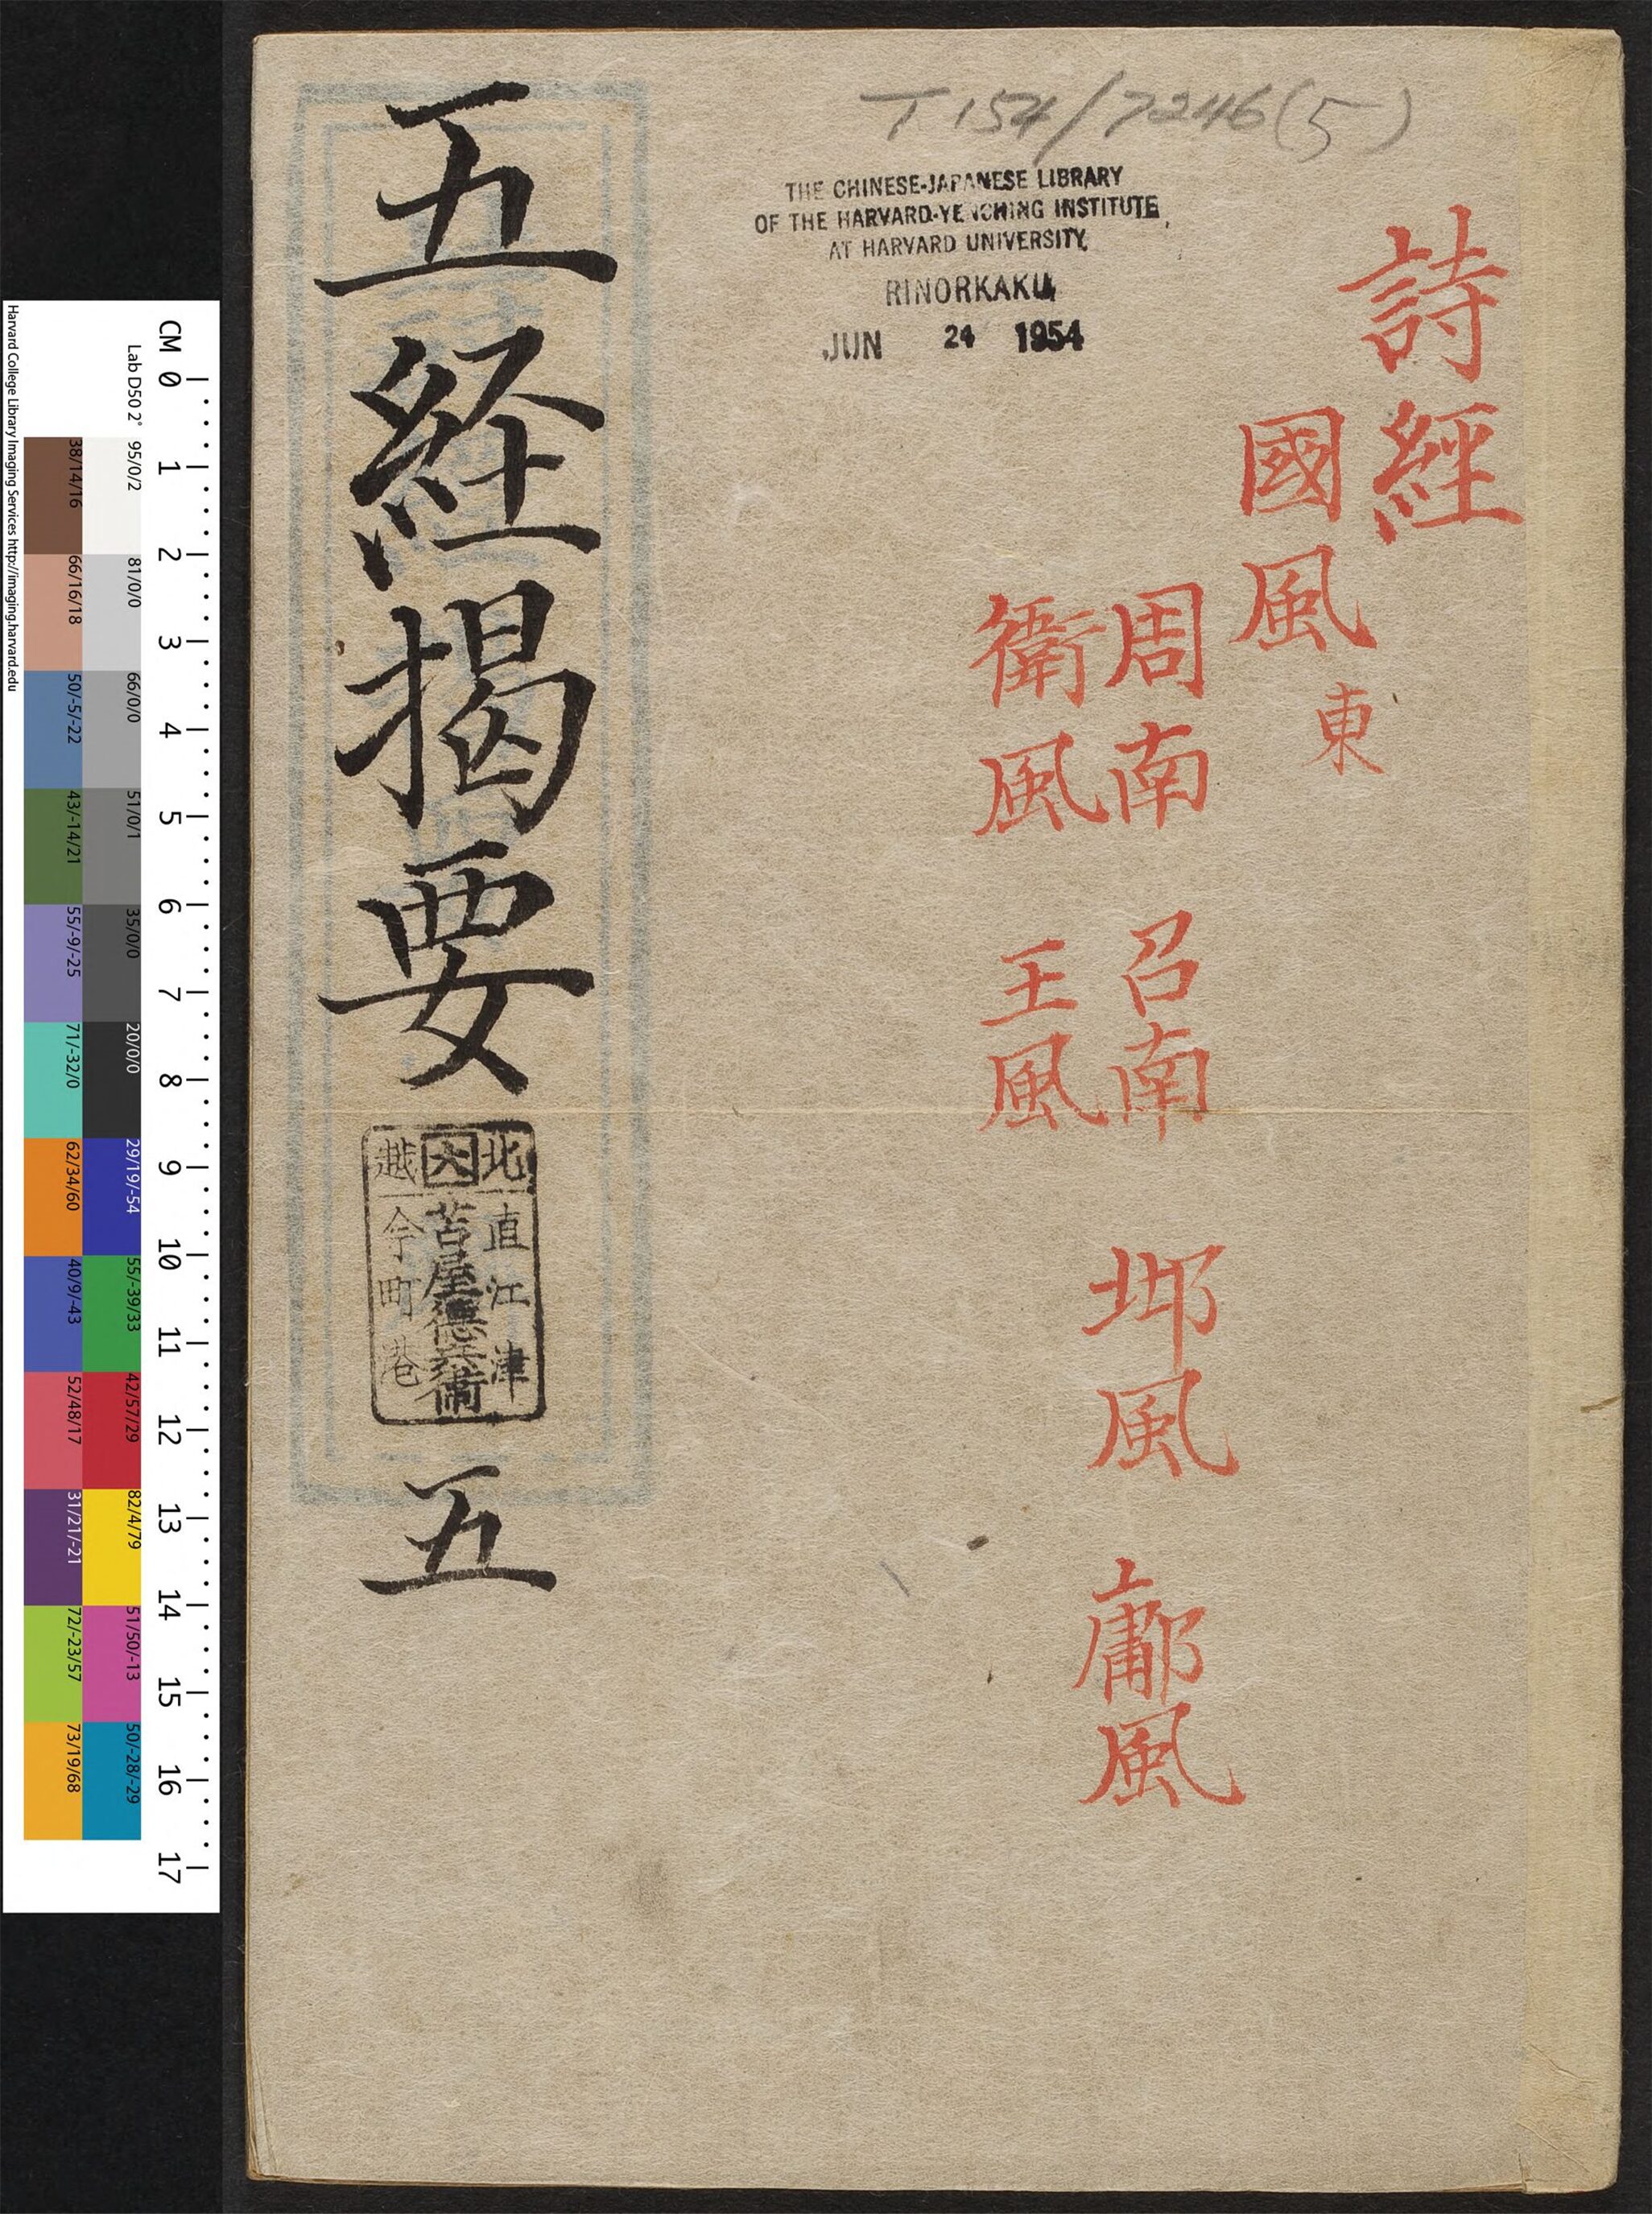 T 154/7246(5)
THE CHINESE-JAPANESE LIBRARY
OF THE HARVARD-YENCHING INSTITUTE
AT HARVARD UNIVERSITY
RINORKAKU
JUN 24 1954
詩經
國風 東
周南 召南 邶風 鄘風
衛風 王風
五経揭要
北 大 越
直江津
苫屋德兵衛
今町港
五
CM 0 1 2 3 4 5 6 7 8 9 10 11 12 13 14 15 16 17
Lab D50 2° 95/0/2 81/0/0 66/0/0 51/0/1 35/0/0 20/0/0 29/19/-54 55/-39/33 42/57/29 82/4/79 51/50/-13 50/-28/-29
38/14/16 66/16/18 50/-5/-22 43/-14/21 55/-9/-25 71/-32/0 62/34/60 40/9/-43 52/48/17 31/21/-21 72/-23/57 73/19/68
Harvard College Library Imaging Services http://imaging.harvard.edu